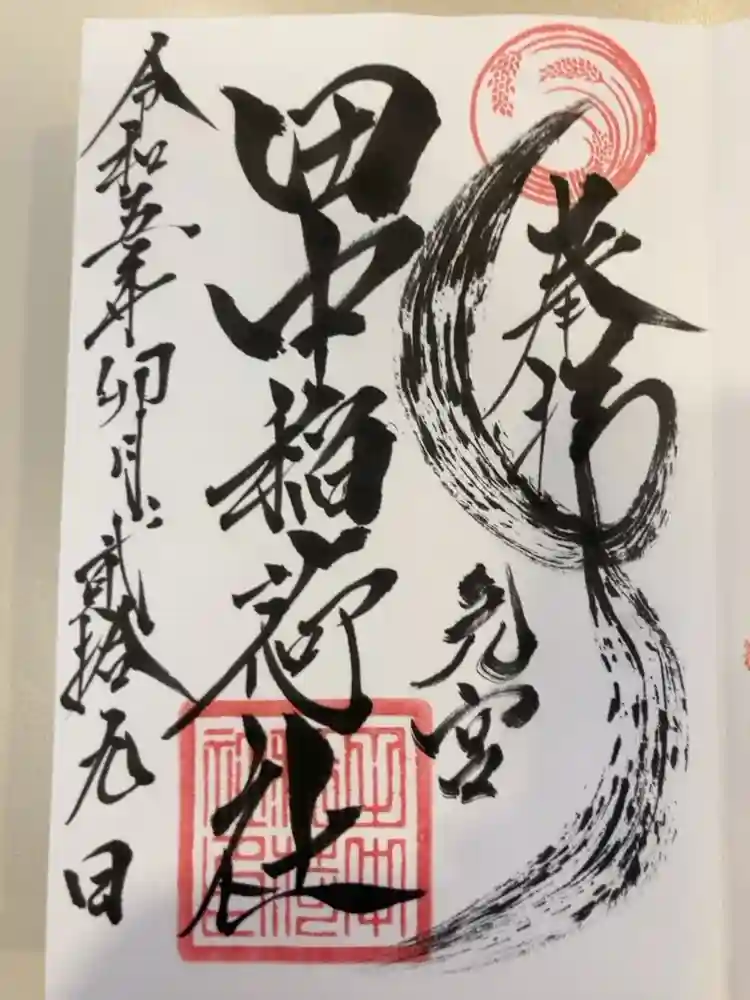 奉拝
元宮
田中稲荷社
令和五年卯月弐拾九日